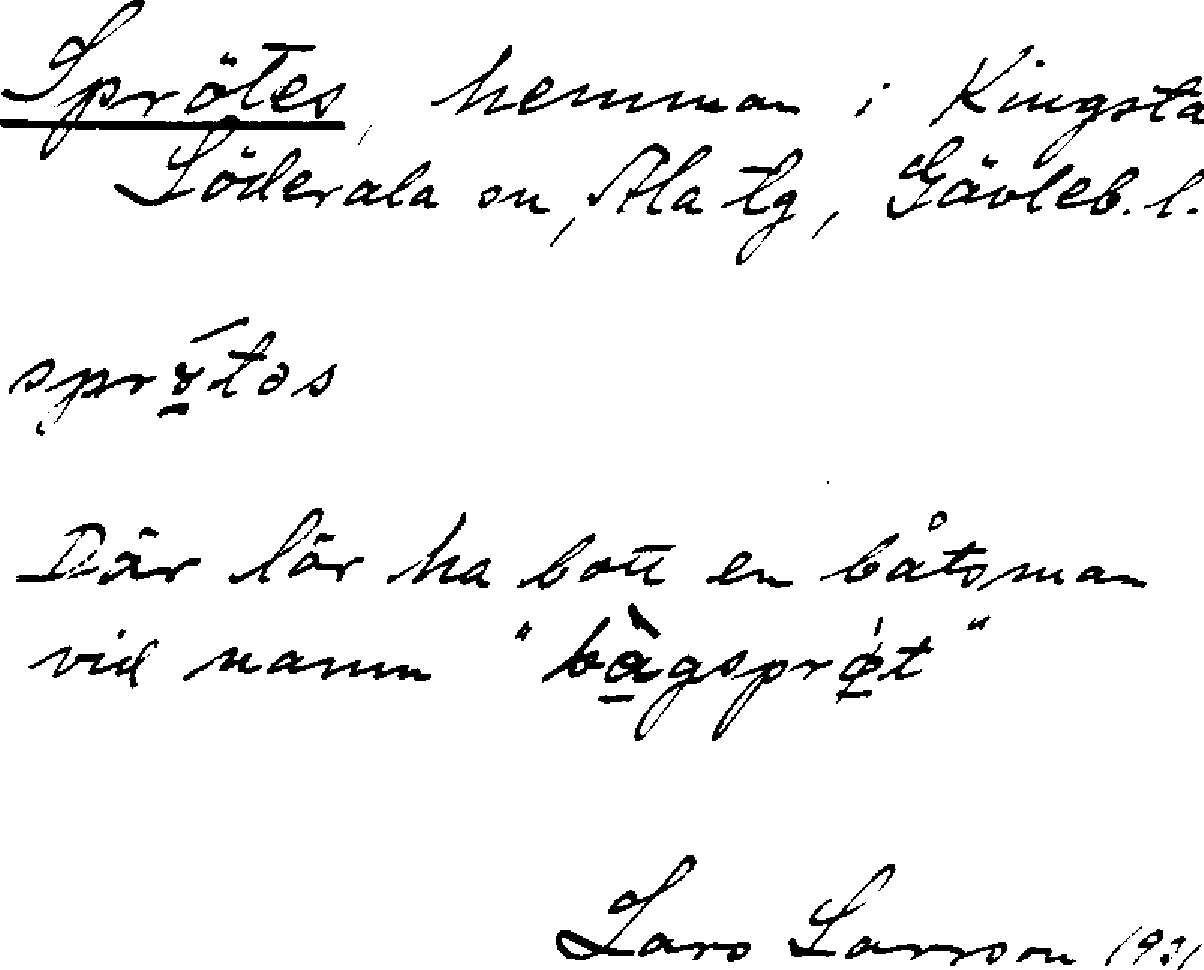 Sprötes, hemman i Kingsta
Söderala sn, Ala tg, Gävleb. l.
Där lär ha bott en båtsman
vid namn "bågsprøt"
Lars Larsson 1931